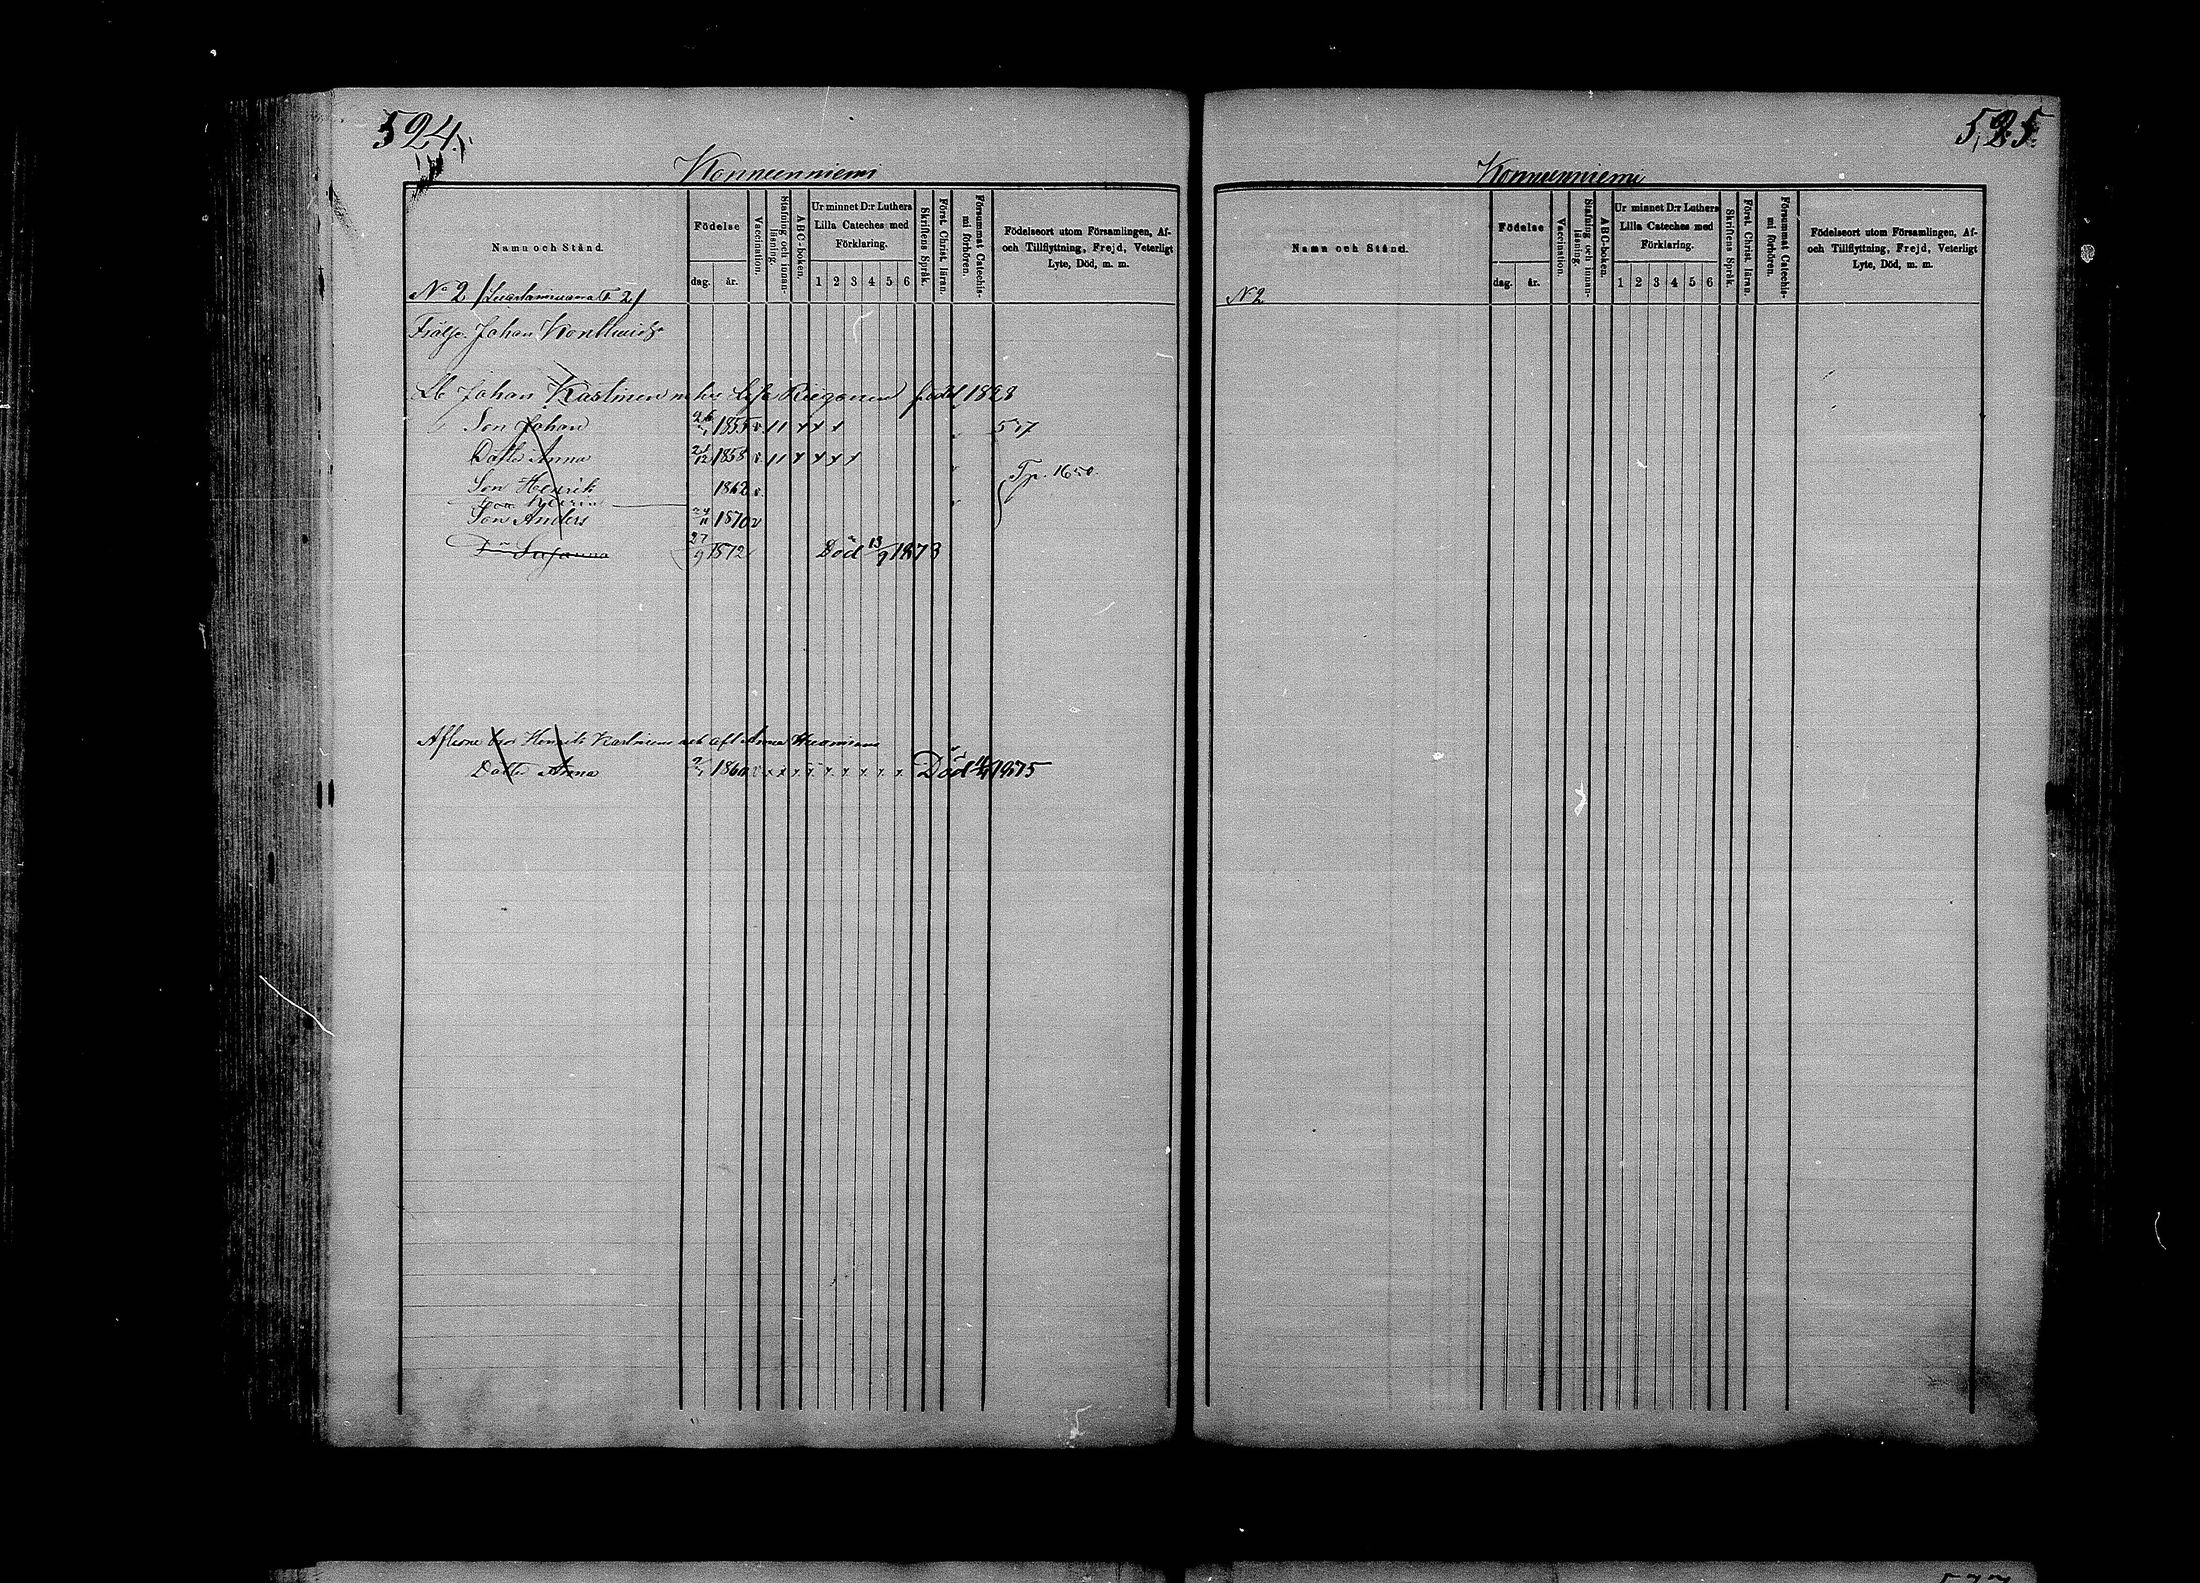 524.
Konnunniemi
Namn och Stånd.
Födelse
dag. år.
Vaccination.
Stafning och innan-läsning.
ABC-boken.
Ur minnet D:r Luthers
Lilla Cateches med
Förklaring.
1 2 3 4 5 6
Skriftens Språk.
Först. Christ. läran.
Försummat Catechis-
mi förhören.
Födelseort utom Församlingen, Af-
och Tillflyttning, Frejd, Veterligt
Lyte, Död, m. m.
No 2
Johan
Johan Kastinen född 1828
Son Johan 1855 517
Dottr Anna 21/12 1858
Tp. 1650.
Son Henrik 1862
Son Anders 24/11 1870
Susanna 27/9 1872 Död 13/9 1873
Henrik Kastinens Anna
Dottr Anna 1860 Död 1875
525
Konnunniemi
Namn och Stånd.
Födelse
dag. år.
Vaccination.
Stafning och innan-läsning.
ABC-boken.
Ur minnet D:r Luthers
Lilla Cateches med
Förklaring.
1 2 3 4 5 6
Skriftens Språk.
Först. Christ. läran.
Försummat Catechis-
mi förhören.
Födelseort utom Församlingen, Af-
och Tillflyttning, Frejd, Veterligt
Lyte, Död, m. m.
No 2